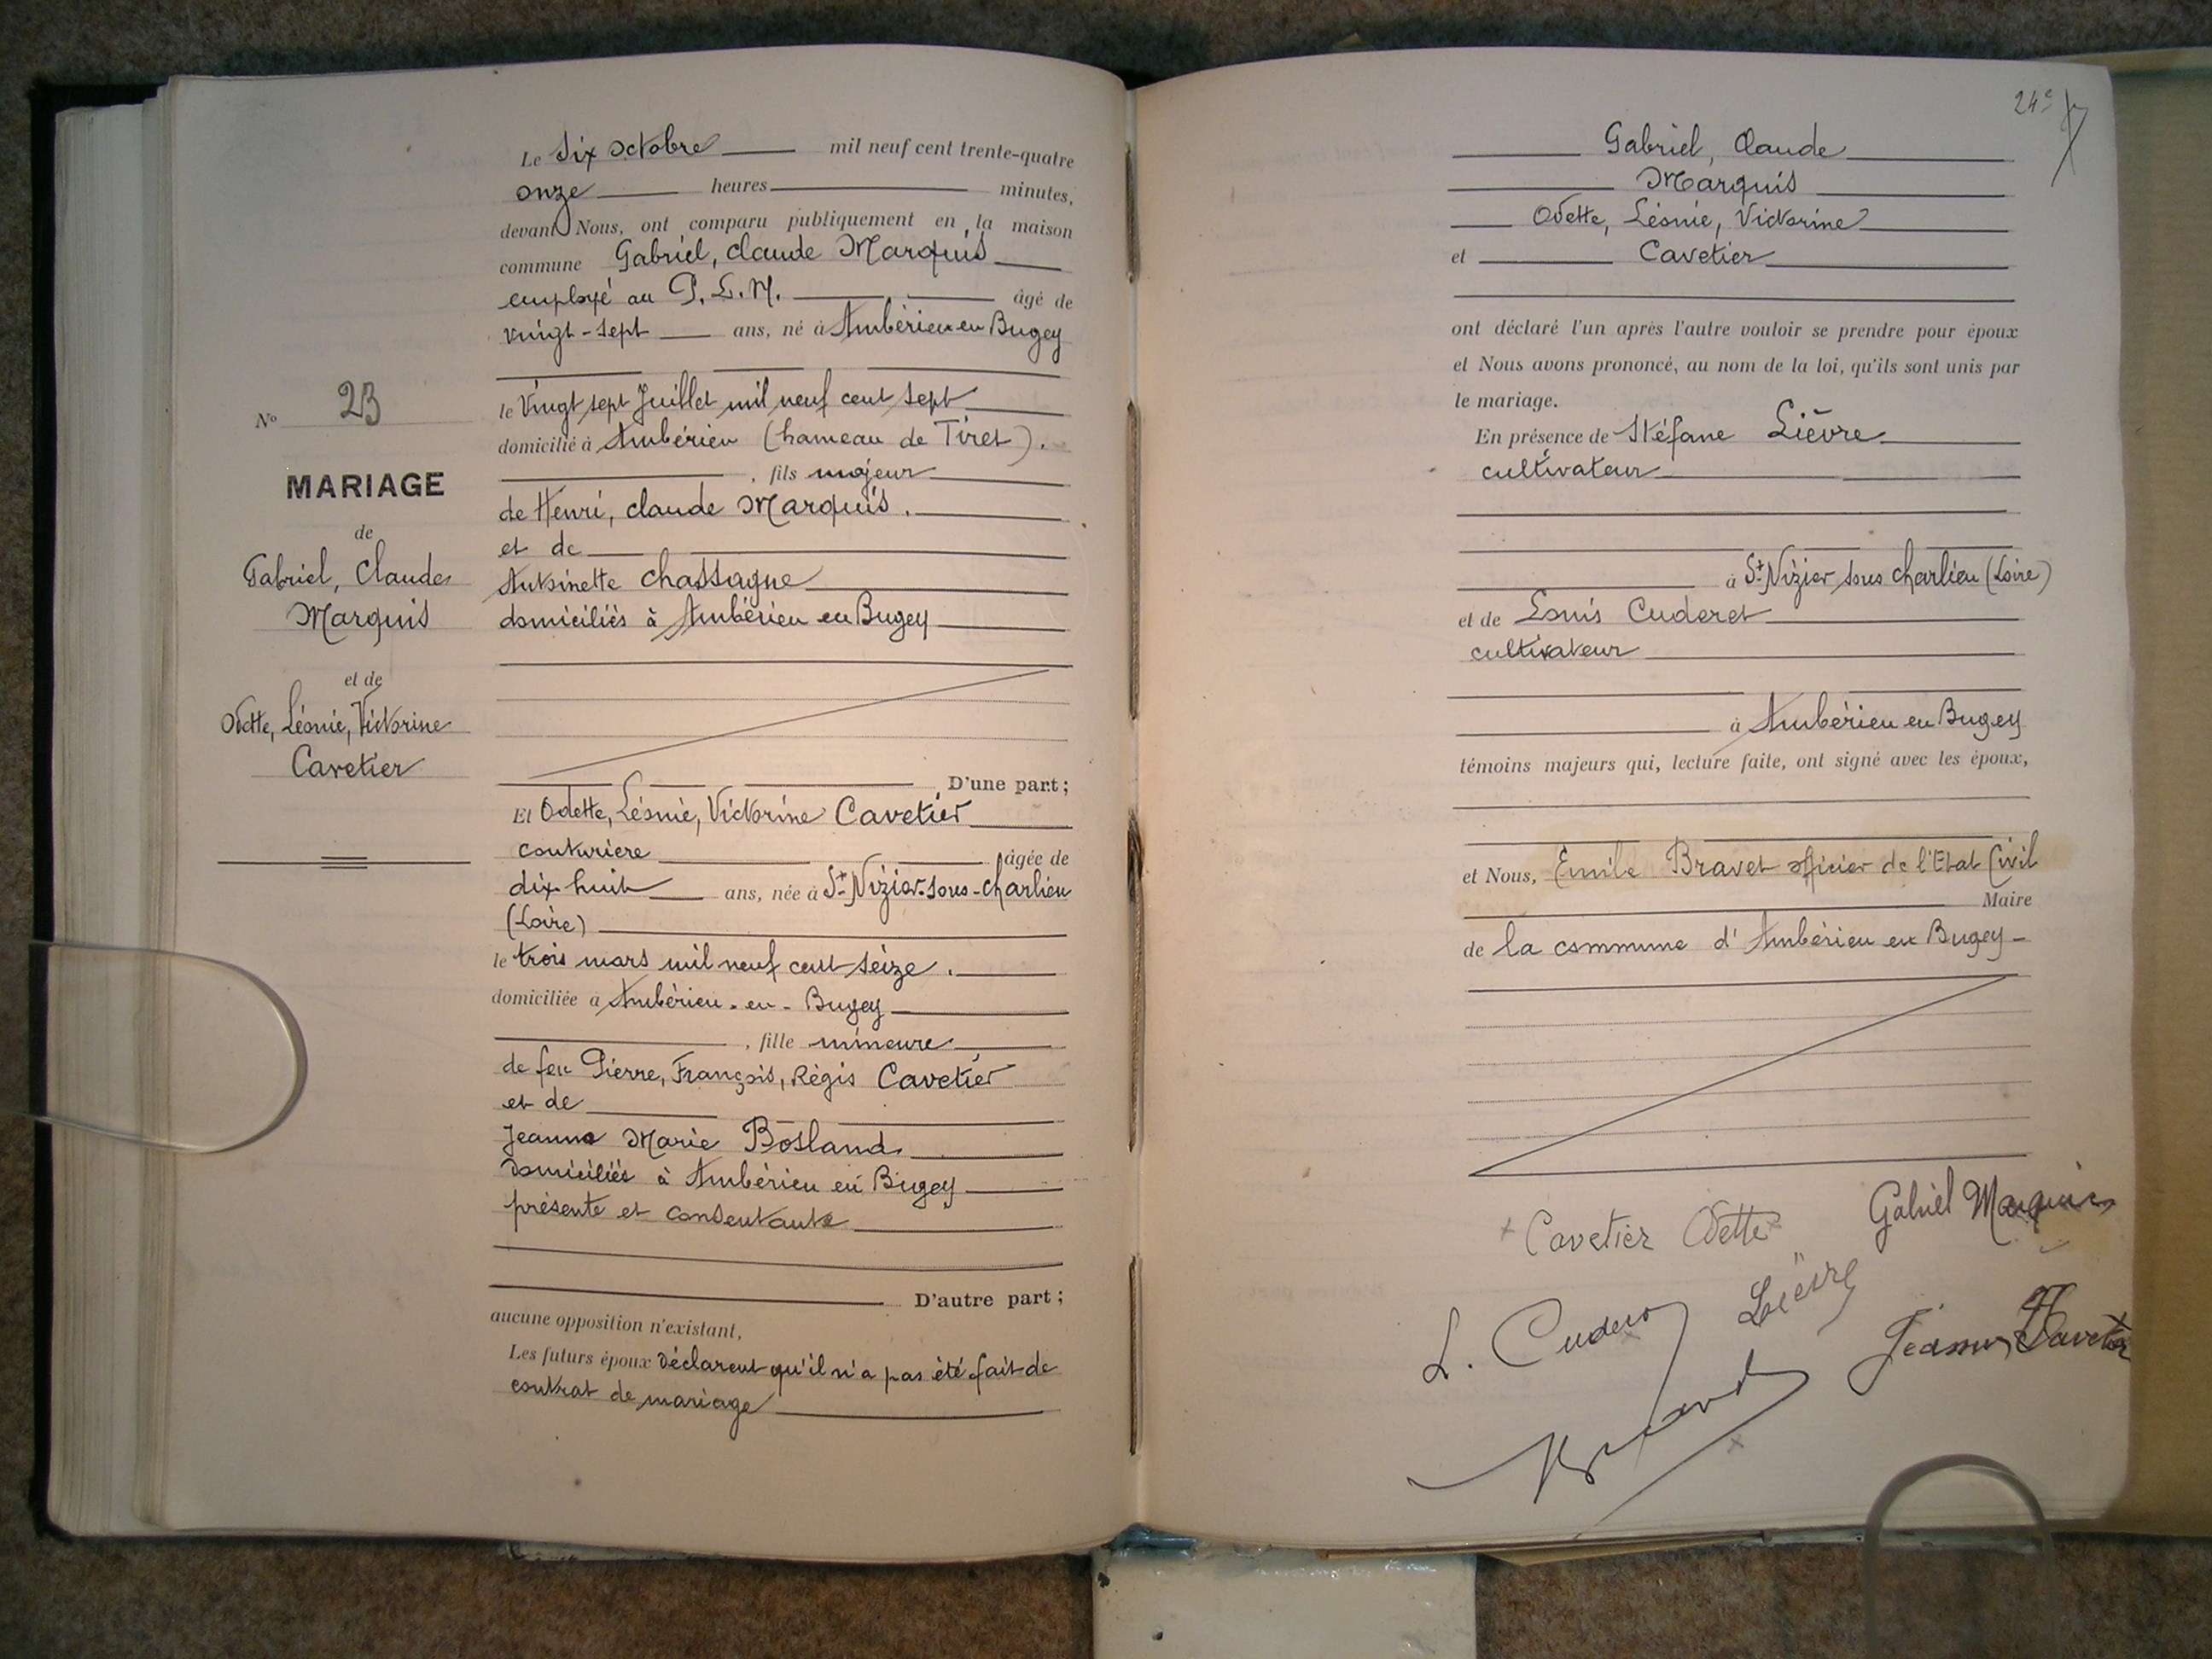 Le Six Octobre mil neuf cent trente-quatre
onze heures minutes,
devant Nous, ont comparu publiquement en la maison
commune Gabriel, Claude Marquis
employé au P.L.M. âgé de
vingt-sept ans, né à Ambérieu en Bugey
le Vingt sept Juillet mil neuf cent sept
domicilié à Ambérieu (hameau de Tiret).
, fils majeur
de Henri, Claude Marquis.
et de
Antoinette Chassagne
domiciliés à Ambérieu en Bugey
D'une part;
Et Odette, Léonie, Victorine Cavetier
couturière âgée de
dix-huit ans, née à St Nizier-sous-Charlieu
(Loire)
le trois mars mil neuf cent seize.
domiciliée à Ambérieu-en-Bugey
, fille mineure
de feu Pierre, François, Régis Cavetier
et de
Jeanne Marie Bosland
domiciliés à Ambérieu en Bugey
présente et consentante
D'autre part;
aucune opposition n'existant,
Les futurs époux déclarent qu'il n'a pas été fait de
contrat de mariage
No 23
MARIAGE
de
Gabriel, Claude
Marquis
et de
Odette, Léonie, Victorine
Cavetier
Gabriel, Claude
Marquis
Odette, Léonie, Victorine
et Cavetier
ont déclaré l'un après l'autre vouloir se prendre pour époux
et Nous avons prononcé, au nom de la loi, qu'ils sont unis par
le mariage.
En présence de Stéfane Lièvre
cultivateur
à St Nizier sous Charlieu (Loire)
et de Louis Cuderet
cultivateur
à Ambérieu en Bugey
témoins majeurs qui, lecture faite, ont signé avec les époux,
et Nous, Emile Bravet officier de l'Etat Civil
Maire
de la commune d'Ambérieu en Bugey-
Cavetier Odette
Gabriel Marquis
L. Cuderet
Lièvre